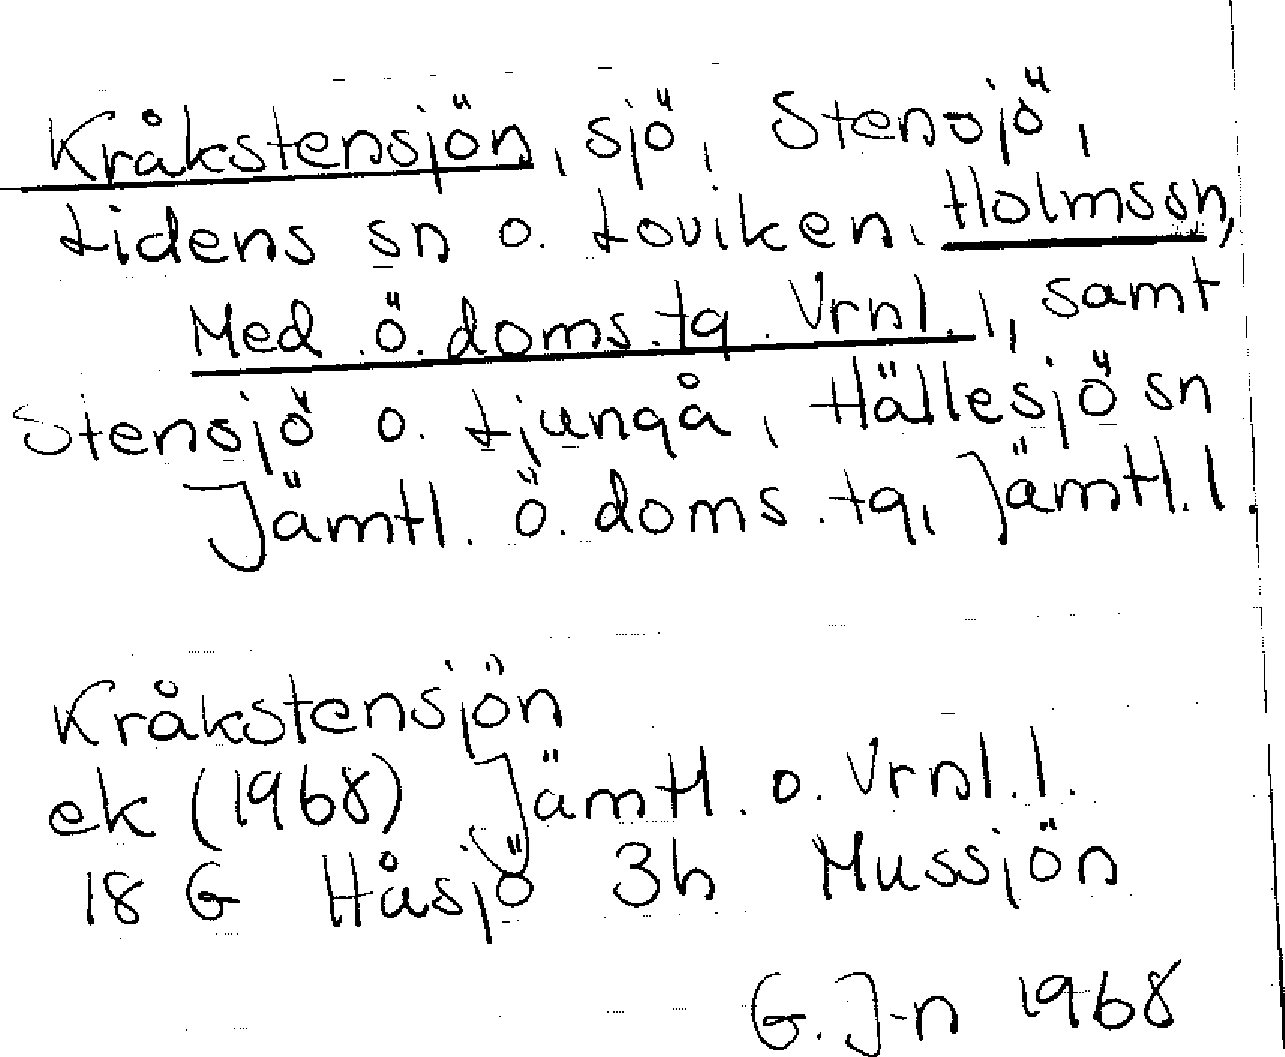 Kråkstensjön, sjö, Stensjö,
Lidens sn o. Loviken, Holmssn,
Med. ö. doms. tg. Vrnl. l, samt
Stensjö o. Ljungå, Hällesjö sn
Jämtl. ö. doms. tg, Jämtl. l.
Kråkstensjön
ek (1968) Jämtl. o. Vrnl. l.
18 G Håsjö 3h Mussjön
G. J-n 1968